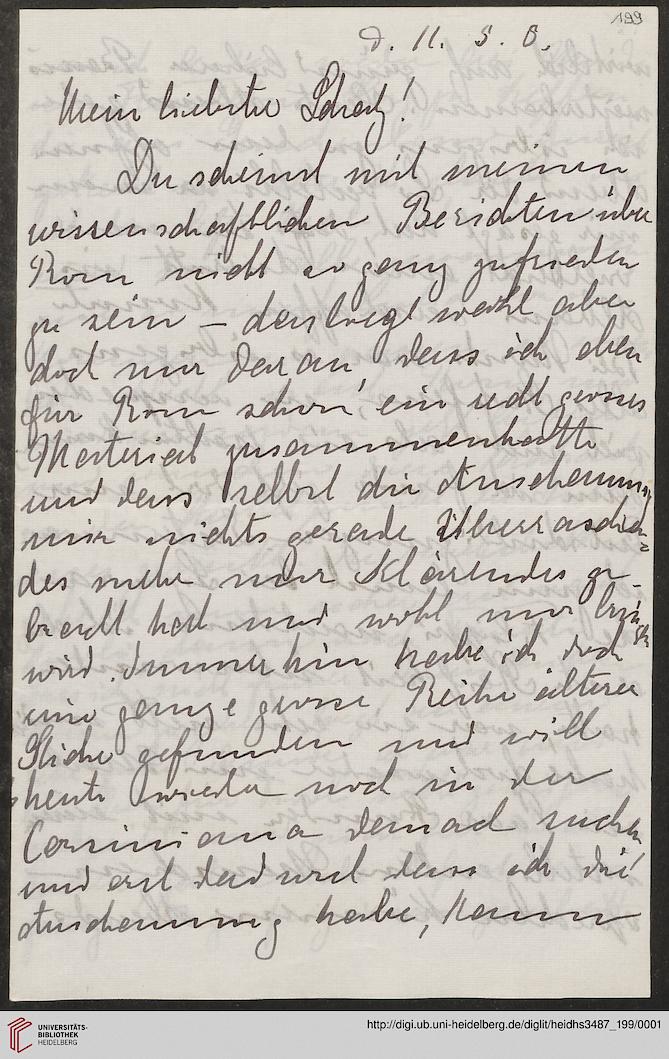 199
d. 11. 5. 8.
Mein liebster Schatz!
Du scheinst mit meinen
wissenschaftlichen Berichten über
Rom nicht so ganz zufrieden
zu sein – das liegt wohl aber
doch nur daran, dass ich eben
für Rom schon ein recht grosses
Material zusammenhatte
und dass selbst die Anschauung
mir nichts gerade Überraschen-
des mehr nur Klärendes ge-
bracht hat und wohl nur bringen
wird. Immerhin habe ich doch
eine ganze grosse Reihe älterer
Stiche gefunden und will
heute wieder noch in der
Corsiniana danach suchen
und erst dadurch dass ich die
Anschauung habe, kann
UNIVERSITÄTS-
BIBLIOTHEK
HEIDELBERG
http://digi.ub.uni-heidelberg.de/diglit/heidhs3487_199/0001